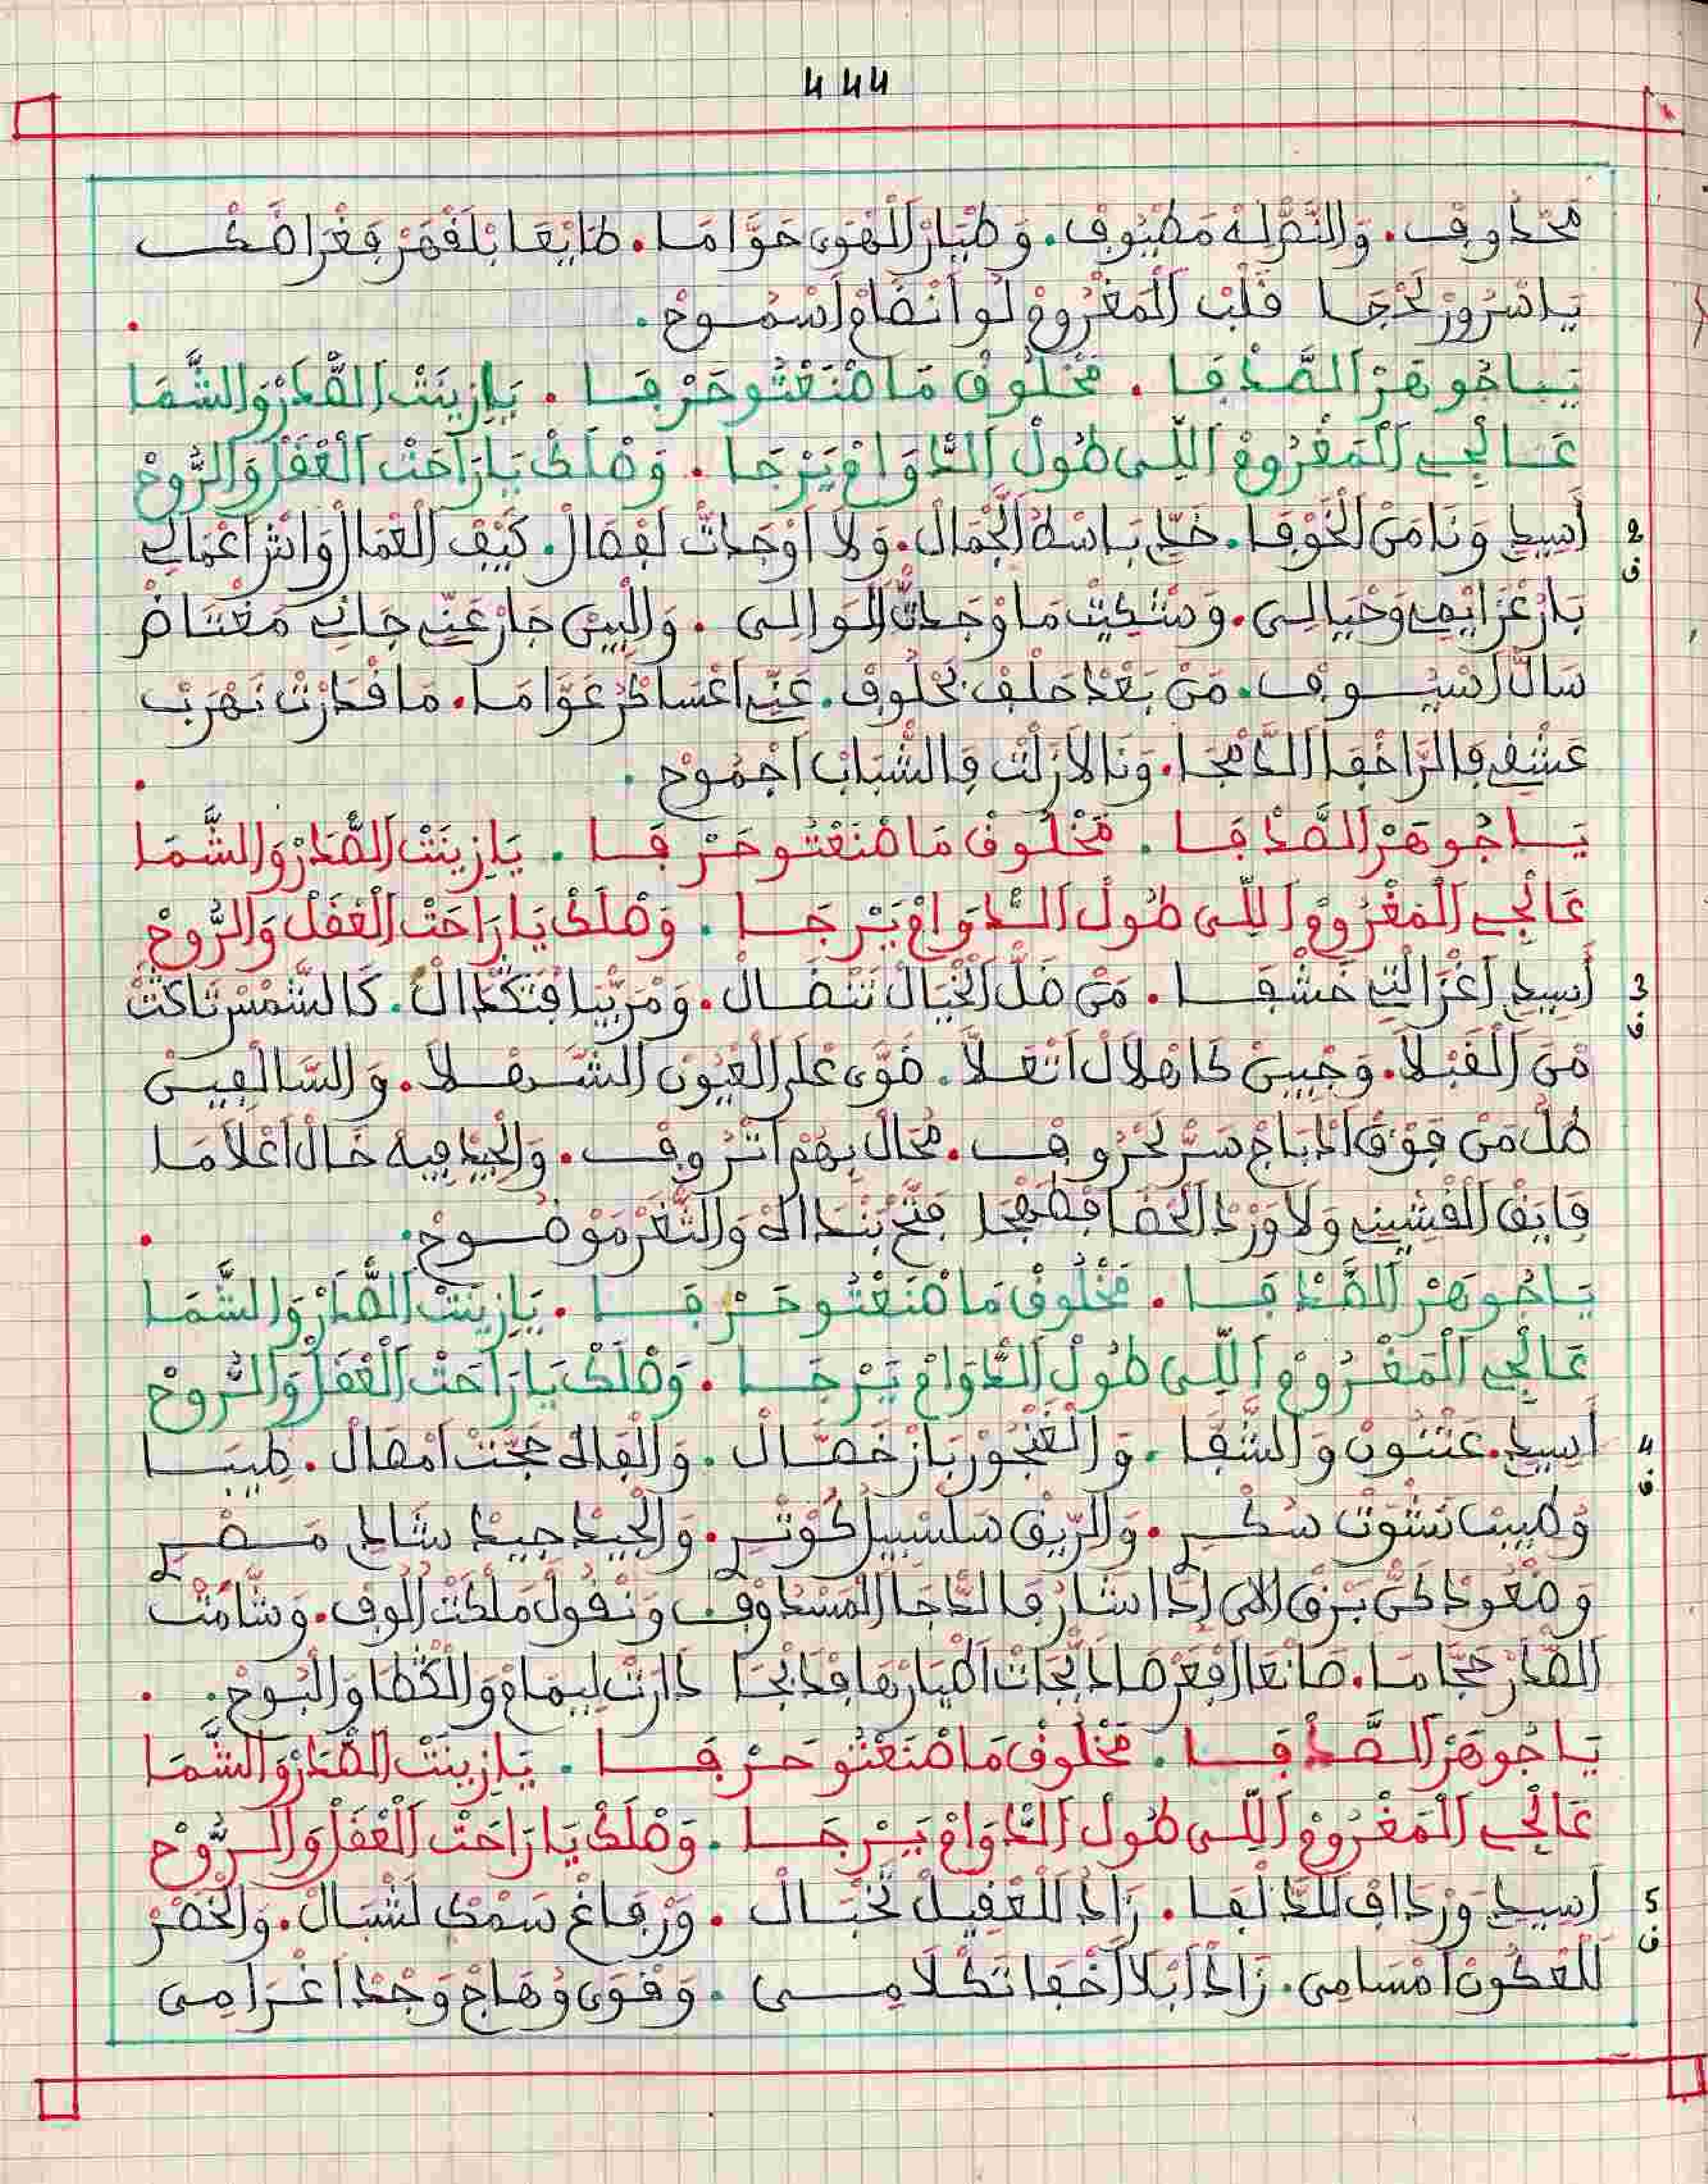 444
مَحْذُوفْ. وَالنَّزْلَهْ مَطْيُوفْ. وَطْيَارْ الْهْوَى حَوَّامَا. طَايْعَا بْلَفْهَرْ فِغْرَاضَكْ
يَاسْرُورْ لَحْجَا قَلْبْ الْمَغْرُومْ لُو انْضَامْ اسْمُوحْ.
يَاجُوهَرْ الصَّدْفَا. مَخْلُوقْ مَاصْنَعْتُو حَرْفَا. يَازِينَتْ الصَّدَرْ وَالشَّمَا
عَالْجِي الْمَغْرُومْ اللِّي طُولْ الدَّوَامْ يَرْجَا. وَصْلَكْ يَارَاحَتْ الْعْقَلْ وَالرُّوحْ
2
ف
أَسِيدِي وَنَا مَنْ الْخُوفَا. خَدِّي بَاسْطُ الْجْمَالْ. وَلاَ اوْجَدْتْ لَفْصَالْ. كَيْفْ الْعْمَالْ وَانْثَرْ اعْمَالِي
بَارْ عْزَايْمِي وَحْيَالِي. وَشْكِيتْ مَا وْجَدْتْ الْوَالِي. وَالْبِينْ جَارْ عَنِّي جَانِي مَغْتَاضْ
سَالّْ اسْيُوفْ. مَنْ بَعْدْ حَلْفْ بْحْلُوفْ. عَنِّي اعْسَاكْرُ عَوَّامَا. مَا قْدَرْتْ نَهْرَبْ
عَشْقِي فِالرَّاحْفَا الدَّمْجَا. وَنَا لاَزَلْتْ فِالشْبَابْ اجْمُوحْ.
يَاجُوهَرْ الصَّدْفَا. مَخْلُوقْ مَاصْنَعْتُو حَرْفَا. يَازِينَتْ الصَّدَرْ وَالشَّمَا
عَالْجِي الْمَغْرُومْ اللِّي طُولْ الدَّوَامْ يَرْجَا. وَصْلَكْ يَارَاحَتْ الْعْقَلْ وَالرُّوحْ
3
ف
أَسِيدِي اغْزَالْتِي خَشْفَا. مَنْ ضَلّْ الْخْيَالْ تَنْضَالْ. وَمْرَبْيَا فْتَكْدَالْ. كَالشَّمْسْ تَاكَتْ
مْنَ الْقَبْلاَ. وَجْبِينْ كَاهْلاَلْ اتْعَلاَّ. ضَوَّى عْلَى الْعْيُونْ الشَّهْلاَ. وَالسَّالْفِينْ
طْلّْ مَنْ فَوْقْ ادْبَاجْ سَرّْ لَحْرُوفْ. مُحَالْ بِهُمْ اتْرُوفْ. وَالْجِيدْ فِيهْ خَالْ اعْلاَمَا
فَايَقْ الْقْشِينِي وَلاَ وَرْدْ الْحْضَا فِطْهْجَا فَتّْحْ بَنْدَاهْ وَالثَّغَرْ مَوْضُوحْ.
يَاجُوهَرْ الصَّدْفَا. مَخْلُوقْ مَاصْنَعْتُو حَرْفَا. يَازِينَتْ الصَّدَرْ وَالشَّمَا
عَالْجِي الْمَغْرُومْ اللِّي طُولْ الدَّوَامْ يَرْجَا. وَصْلَكْ يَارَاحَتْ الْعْقَلْ وَالرُّوحْ
4
ف
أَسِيدِي. عَتْنُونْ وَالشّْفَا. وَالْغَنْجُورْ بَازْ خَصَّالْ. وَالْفَالَجْ حَجّْتْ امْقَالْ. طِيبَا
وَطِيبْ نَشْوَتْ سُكْرِي. وَالرِّيقْ سَلْسَبِيلْ كَوْثَرِي. وَالْجِيدْ جِيدْ شَادِي مَصْرِي
وَصْعُودْ كَنّْ بَرْقْ الاَنْ إِذَا اشَارْ فِالدَّجَا الْمَسْدُوفْ وَنْقُولْ مَلْكَتْ الُوفْ. وَشَامَتْ
الصَّدَرْ حَجَّامَا. صَانْعَا ارْفِعْ صَادْ نْجَاتْ اطْيَارْهَا فِدْبْجَا دَارَتْ لِيمَامْ وَالْكْطَا وَالْبُوحْ.
يَاجُوهَرْ الصَّدْفَا. مَخْلُوقْ مَاصْنَعْتُو حَرْفَا. يَازِينَتْ الصَّدَرْ وَالشَّمَا
عَالْجِي الْمَغْرُومْ اللِّي طُولْ الدَّوَامْ يَرْجَا. وَصْلَكْ يَارَاحَتْ الْعْقَلْ وَالرُّوحْ
5
ف
أَسِيدِي وَرْدَافْ لَلدَّلْفَا. زَادْ لَلْعْقِيلْ تَخْبَالْ. وَرْفَاغْ سَمْكْ لَشْبَالْ. وَالْخْصَرْ
لَلْعْكُونْ امْسَامِي. زَادْ ابْلاَ اخْفَا تَكْلاَمِي. وَقْوَى وْهَاجْ وَجْدْ اغْرَامِي